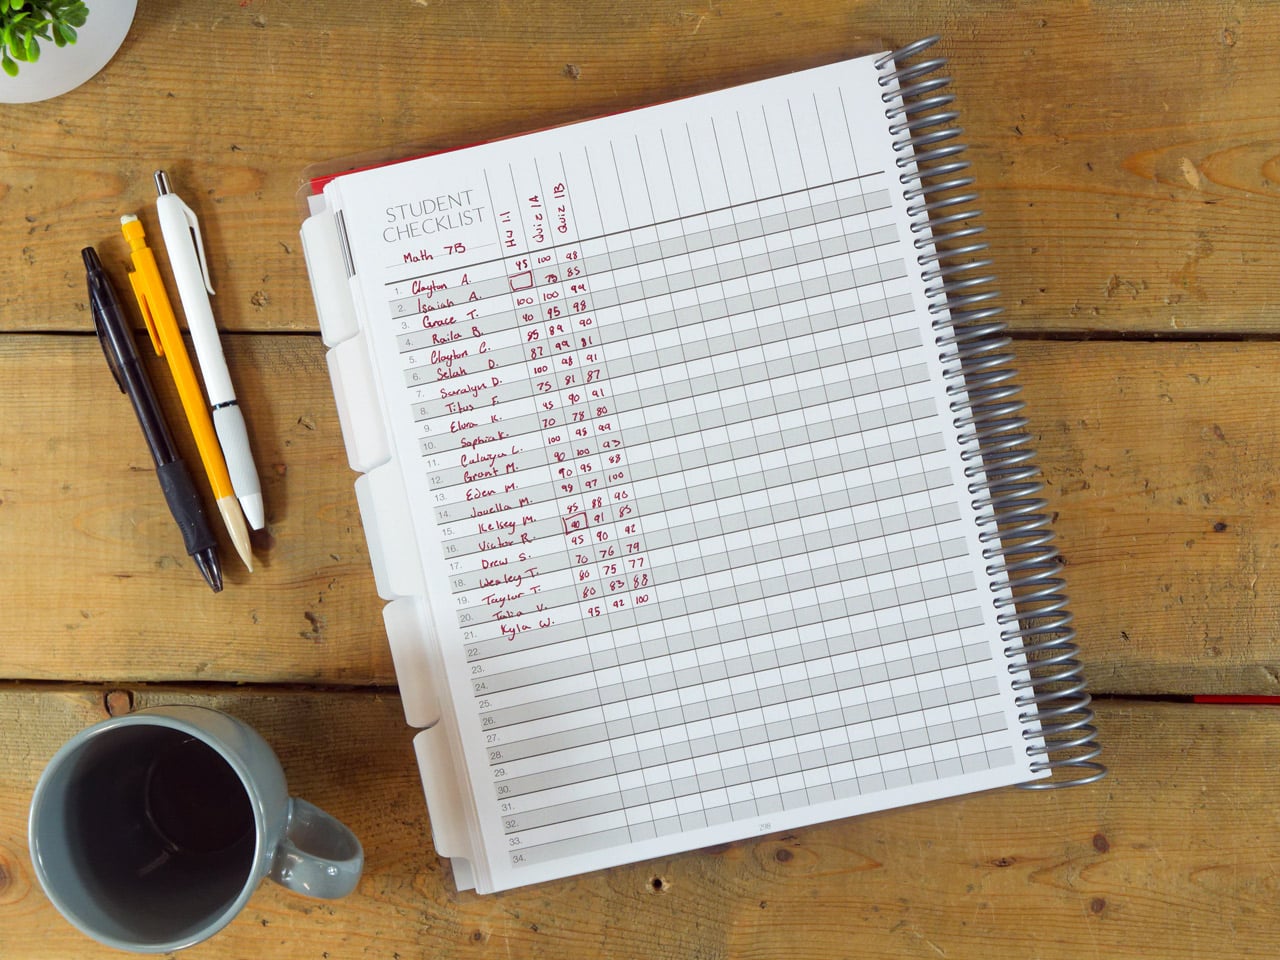 STUDENT
CHECKLIST
Math 7B
HW 1.1 Quiz 1A Quiz 1B
1. Clayton A. 95 100 98
2. Isaiah A. 75 85
3. Grace T. 100 100 99
4. Raila B. 90 95 98
5. Clayton C. 85 89 90
6. Selah D. 87 99 81
7. Saralyn D. 100 98 91
8. Titus F. 75 81 87
9. Elura K. 95 90 91
10. Sophia K. 70 78 80
11. Calaiya L. 100 95 99
12. Grant M. 90 100 93
13. Eden M. 90 95 88
14. Jouella M. 99 97 100
15. Kelsey M. 85 88 90
16. Victor R. 90 91 85
17. Drew S. 95 90 92
18. Wesley T. 70 76 79
19. Taylor T. 80 75 77
20. Talia V. 80 83 88
21. Kyla W. 95 92 100
22.
23.
24.
25.
26.
27.
28.
29.
30.
31.
32.
33.
34.
298